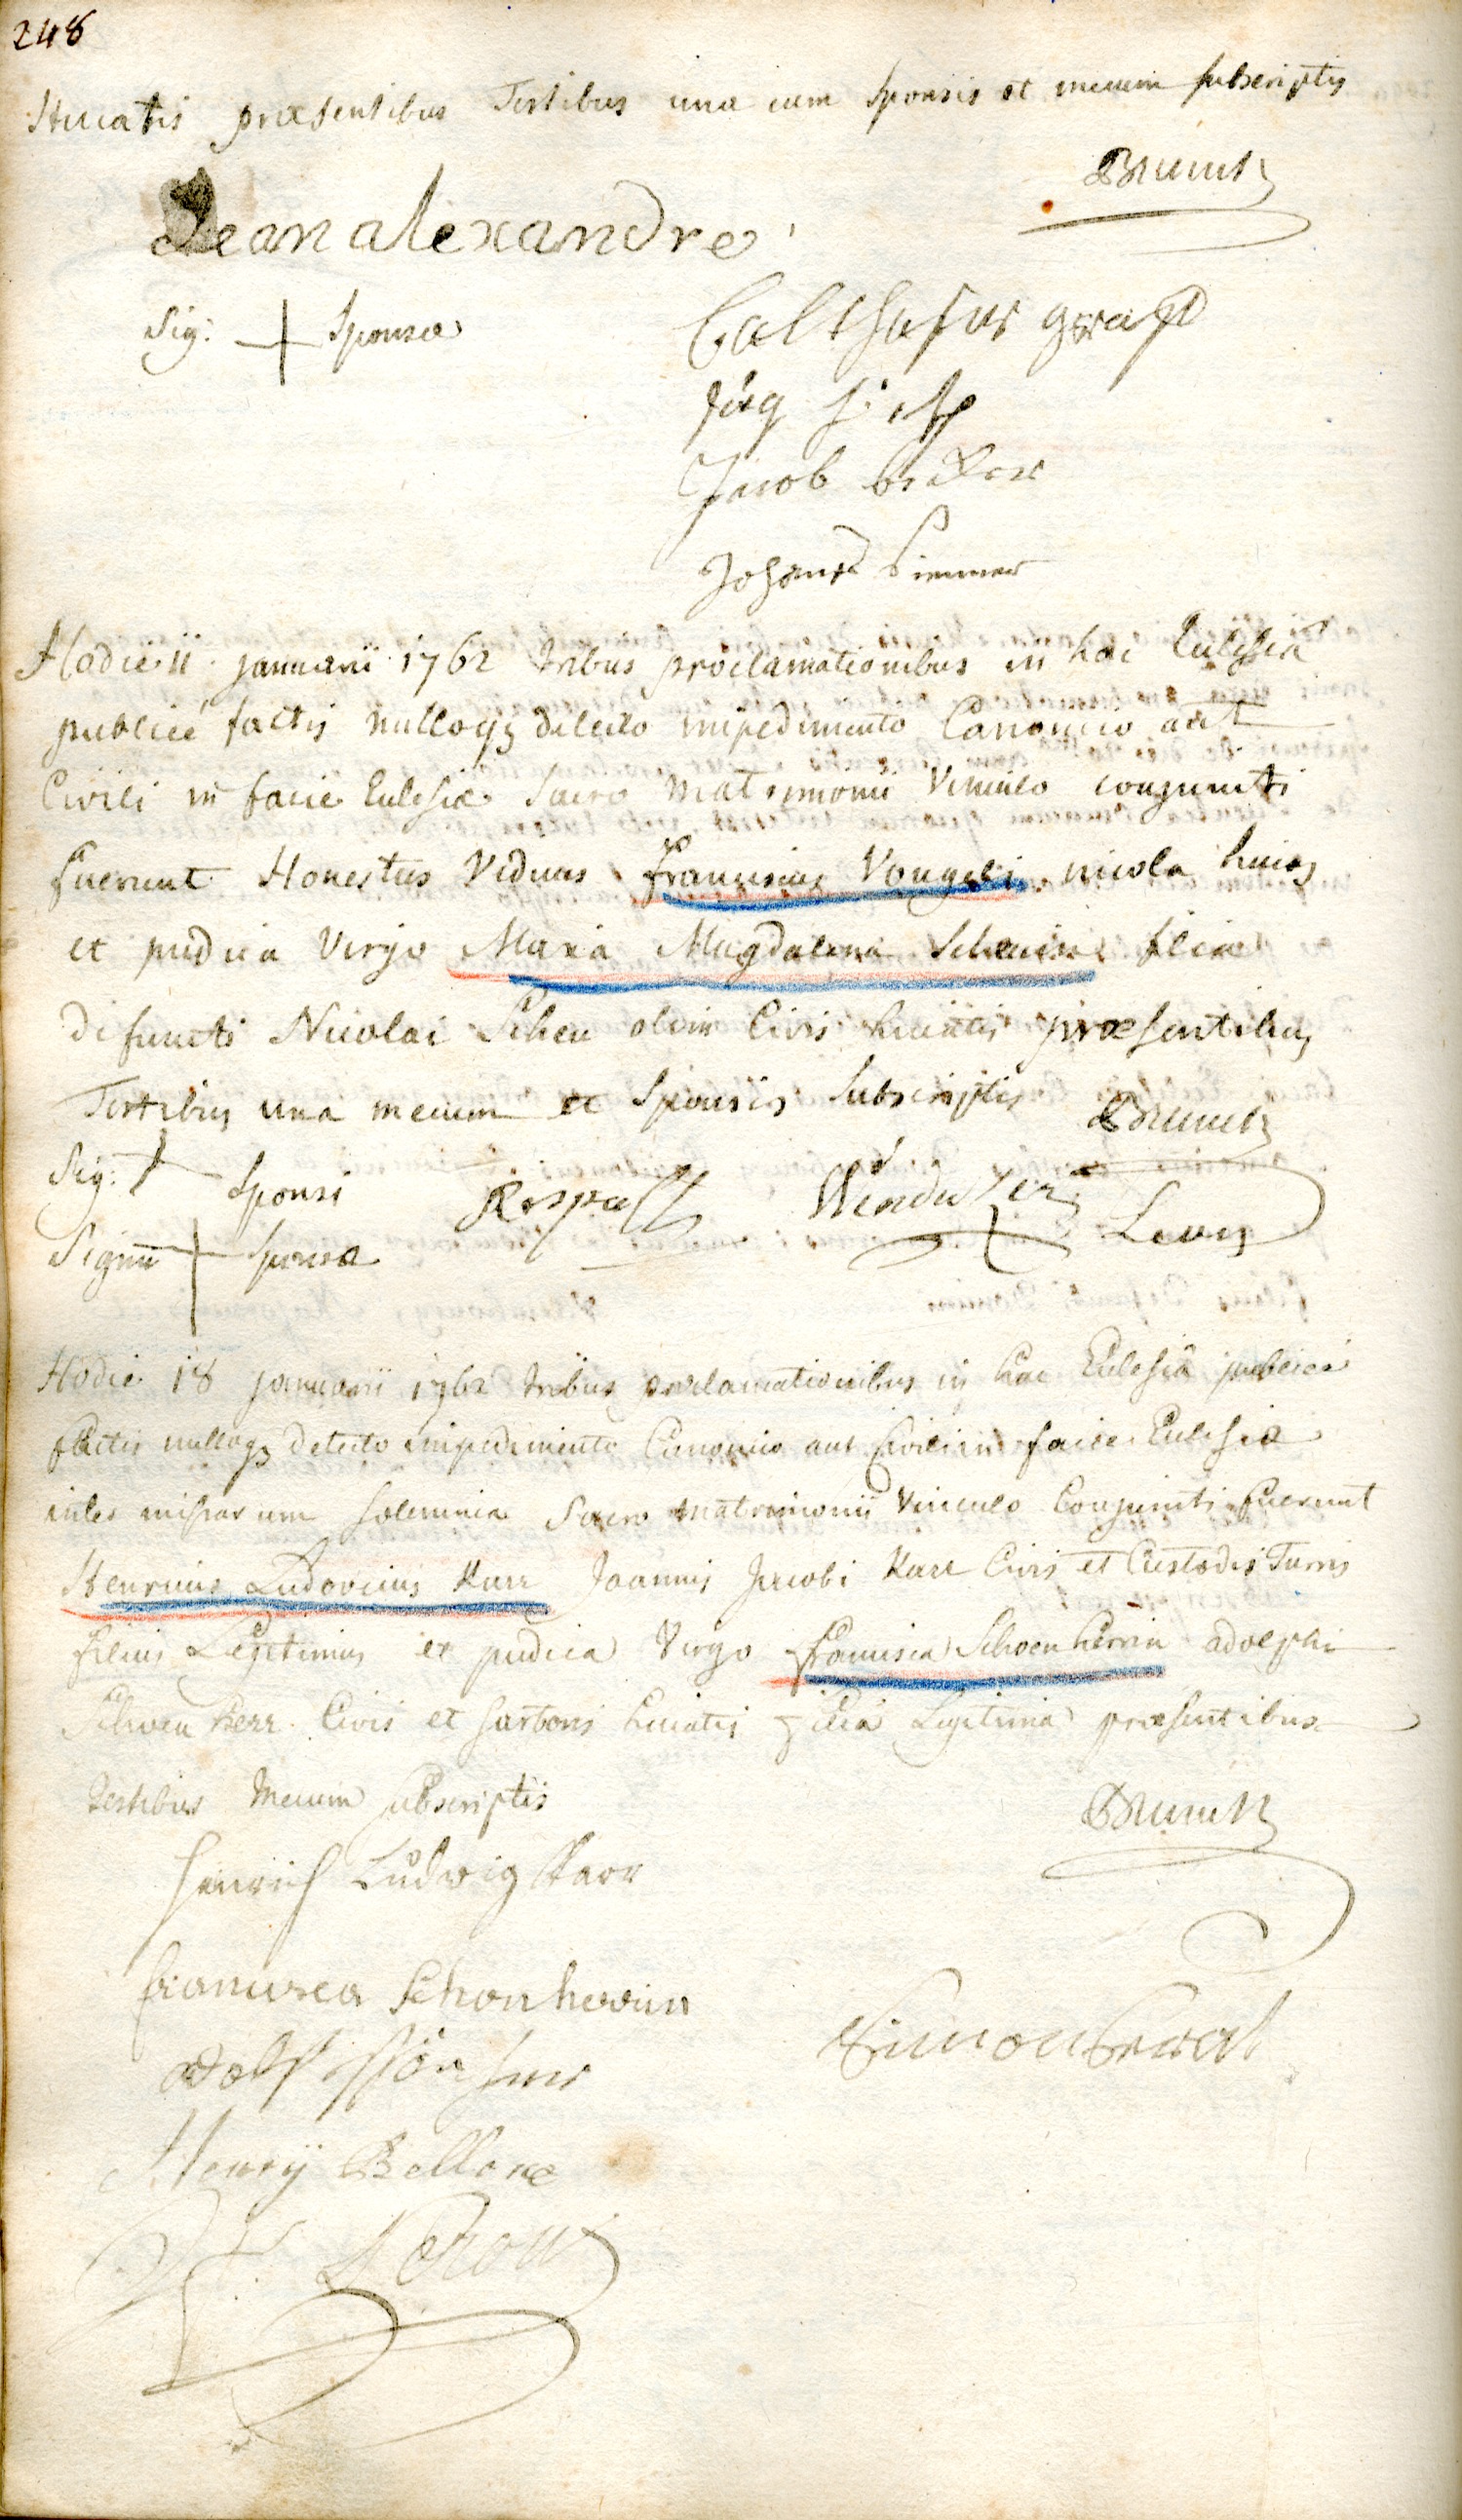 248
Huiatis præsentibus Testibus una cum Sponsis et mecum subscriptis
Jean alexandre
Sig: + Sponsæ
Jacob becker
Johans
Hodie 11 januarii 1762 tribus proclamationibus in hac Eulesia
publicé factis nulloq; detecto impedimento Canonico aut
Civili in facie Eulesiæ Sacro Matrimonii Vinculo conjuncti
fuerunt Honestus Viduus franciscus Vongeli incola huias
et pudica Virgo Maria Magdalena Scheuin filia
defuncti Nicolai Scheu olim Civis huiatis præsentibus
Testibus una mecum et Sponsis Subscriptis
Sig: + Sponsi
Levis
Signū + sponsæ
Hodie 18 januarii 1762 tribus proclamationibus in hac Eulesiâ publicé
factis nulloq; detecto impedimento Canonico aut Civili in facie Eulesiæ
inter missarum solemnia Sacro Matrimonii Vinculo Conjuncti fuerunt
Henricus Ludovicus Karr Joannis Jacobi Karr Civis et Custodis Turris
filius Legitimus et pudica Virgo francisca Schoenherrin adolphi
Schoenherr Civis et sartoris huiatis filia Legitima præsentibus
testibus Mecum subscriptis
Henrich Ludwig Karr
francisca Schonherrin
Adolf schönherr
Henry Bellone